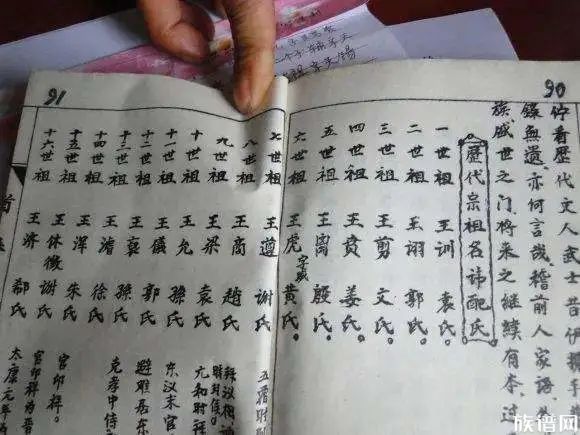 90
佇看歷代文人武士昔伊耕
錄無遺、亦何言哉、稽前人家語、
族盛世之门、将来之继续有本、
歷代宗祖名諱配氏
一世祖 王训 袁氏。
二世祖 王诩 郭氏。
三世祖 王剪 文氏。
四世祖 王贲 姜氏。
五世祖 王离 殷氏。
六世祖 王虎 字威 黄氏。
91
七世祖 王遵 谢氏
八世祖 王商 赵氏
九世祖 王梁 袁氏 元和时拜
十世祖 王允 孫氏 东汉末官
十一世祖 王儀 郭氏 避难居东
十二世祖 王 孫氏 克孝中侍
十三世祖 王濬 徐氏
十四世祖 王浑 朱氏 官印祥。
十五世祖 王休徵 谢氏 官印祥为晋
十六世祖 王济 郗氏 太康元年
族谱网